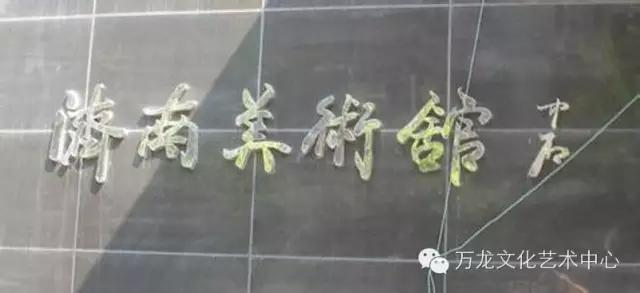 濟南美術館 中石
万龙文化艺术中心